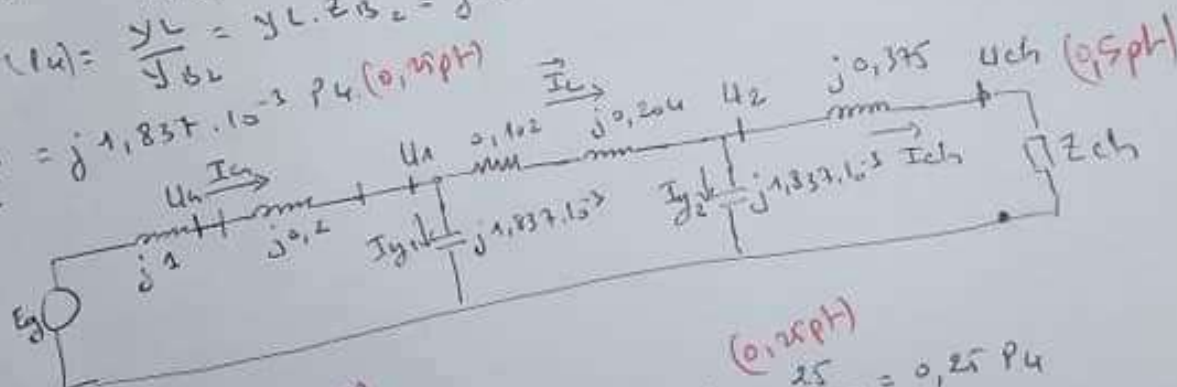 (Pu) = yL / yBL = yL . ZBL = j
= j1,837.10⁻³ Pu (0,25pt)
Un IG→ U1 0,102 IL→ j0,204 U2 j0,375 Uch (0,5pt)
j1 j0,2 Iy1 j1,837.10⁻³ Iy2 j1,837.10⁻³ Ich→ Zch
Eg
(0,25pt)
25 = 0,25 Pu